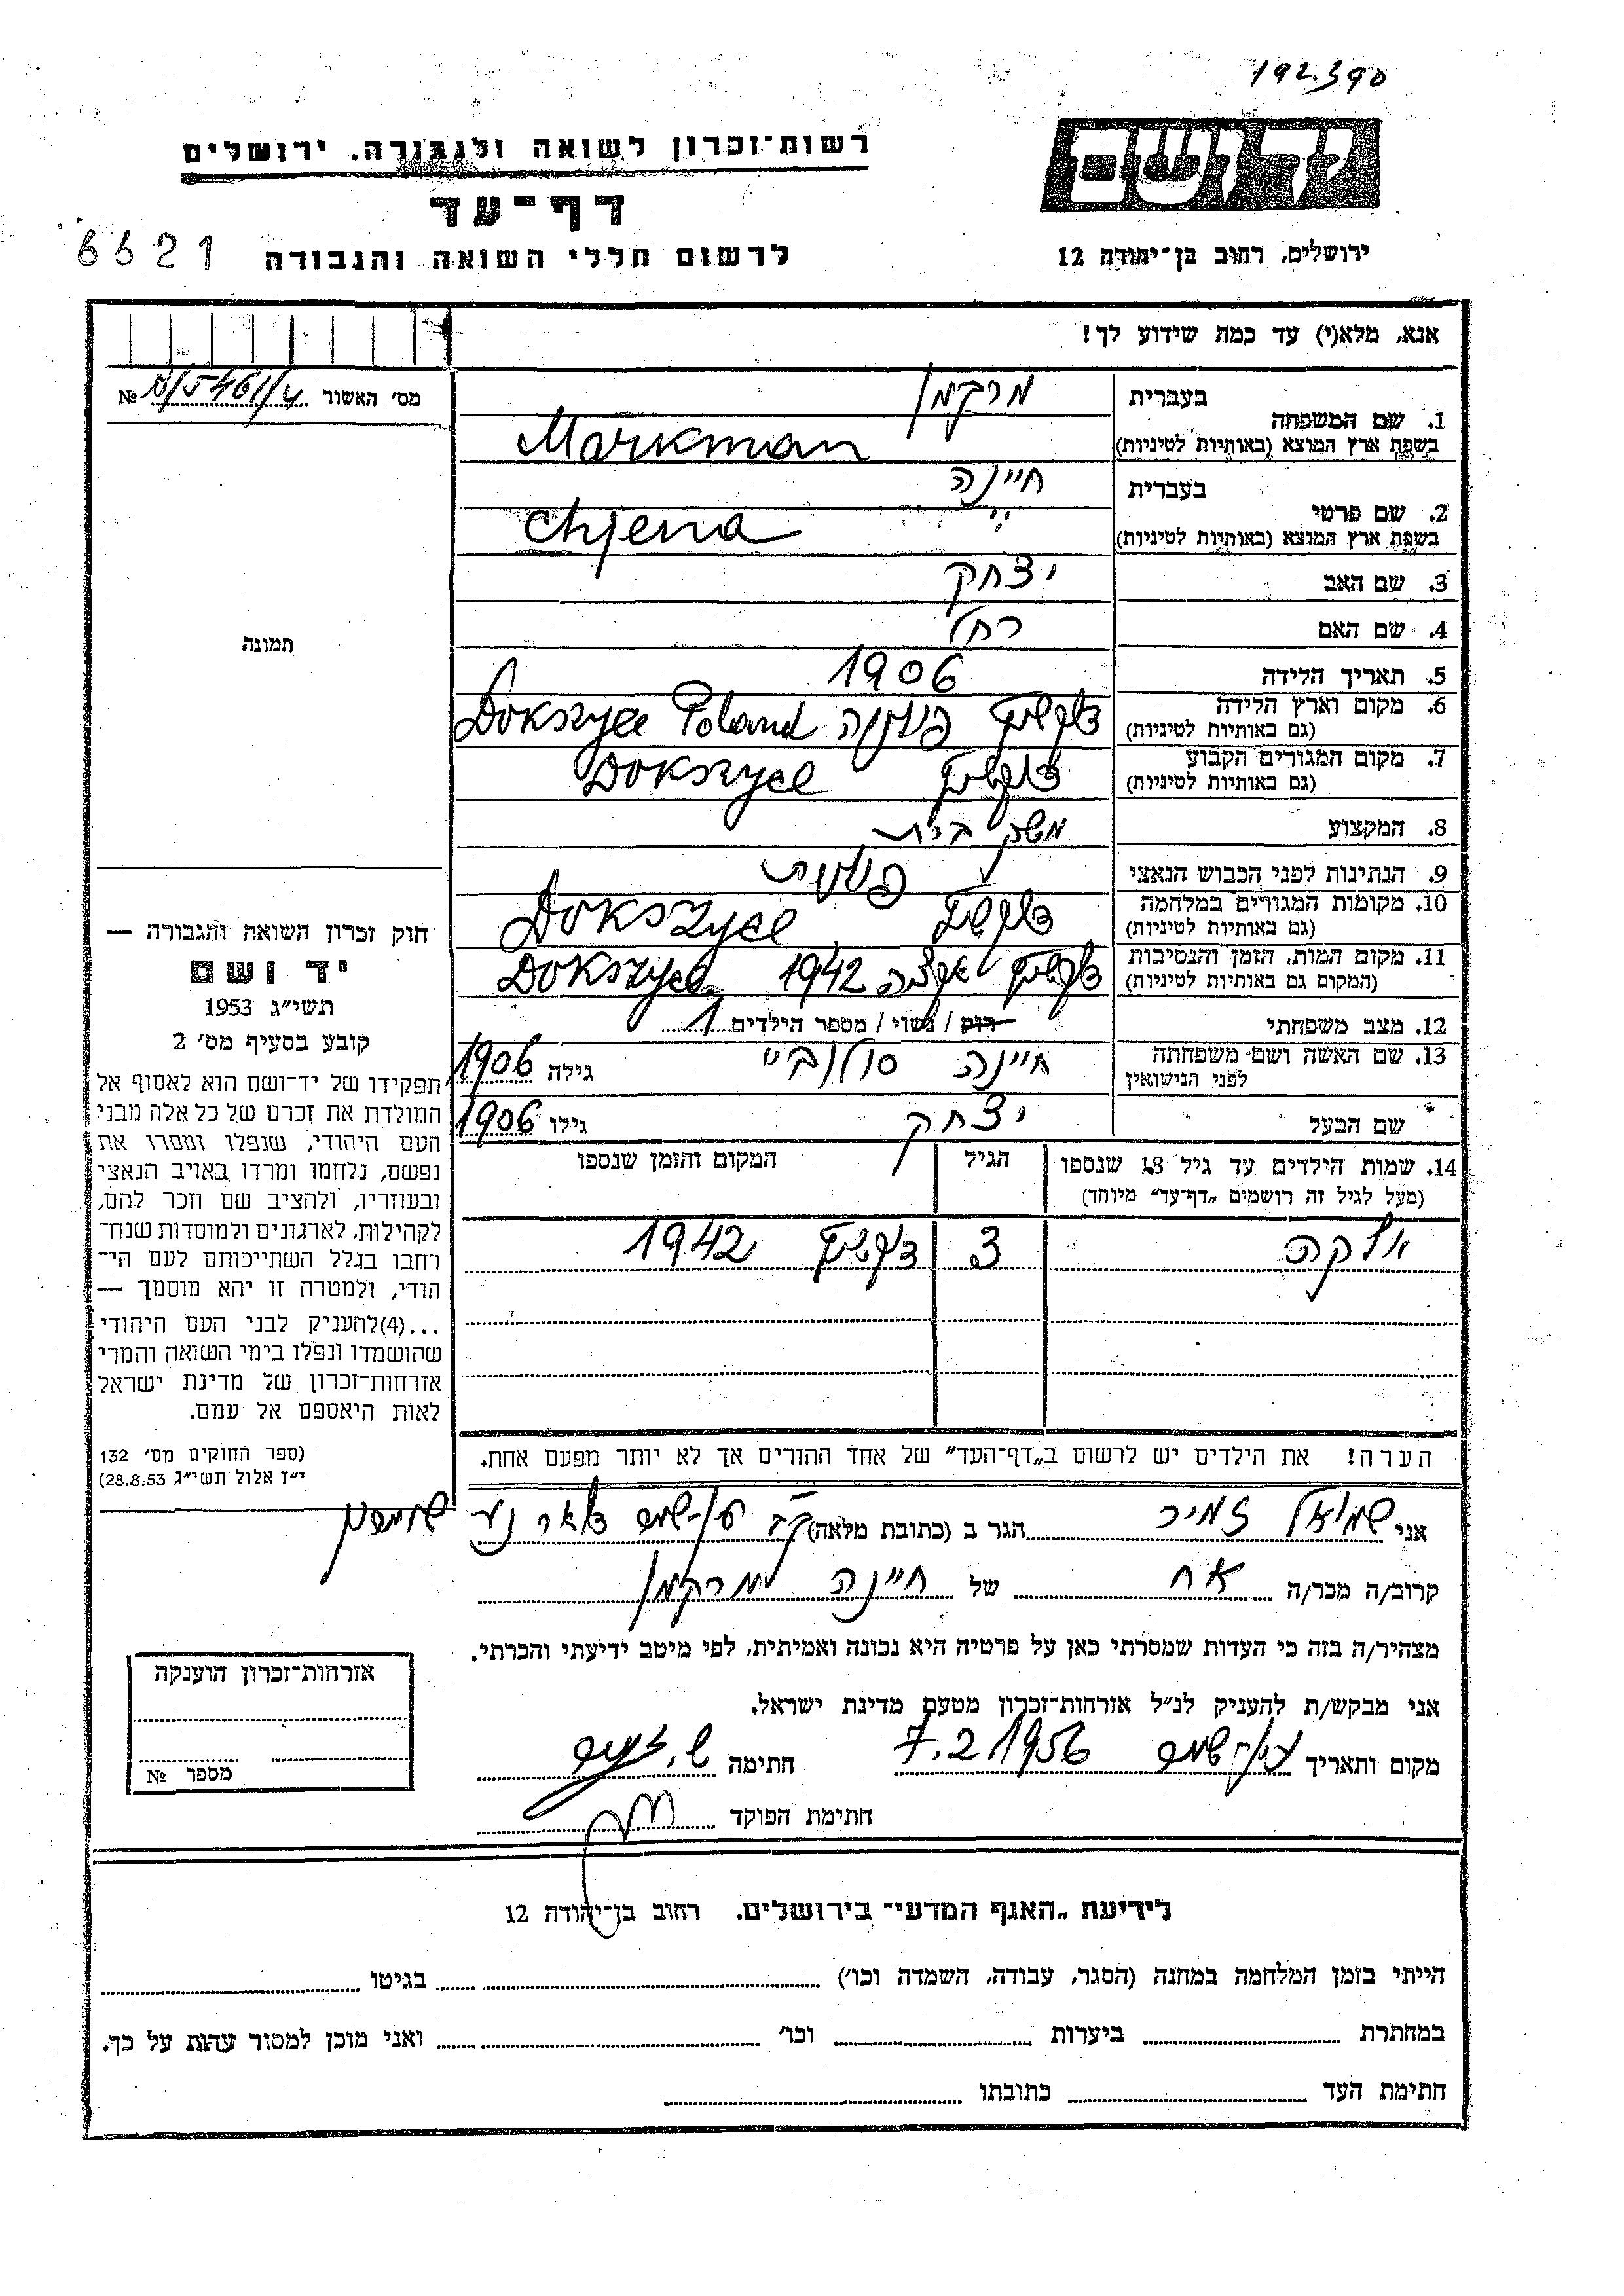 192.390
יד ושם
רשות־זכרון לשואה ולגבורה, ירושלים
דף־עד
ירושלים, רחוב בן־יהודה 12
לרשום חללי השואה והגבורה
6621
אנא, מלא(י) עד כמה שידוע לך!
מס׳ האשור № 
1. שם המשפחה
בעברית
מרקמן
בשפת ארץ המוצא (באותיות לטיניות)
Markman
2. שם פרטי
בעברית
חיינה
בשפת ארץ המוצא (באותיות לטיניות)
Chjena
3. שם האב יצחק
4. שם האם רחל
5. תאריך הלידה 1906
6. מקום וארץ הלידה
(גם באותיות לטיניות)
דוקשיץ פולניה Dokszyce Poland
7. מקום המגורים הקבוע
(גם באותיות לטיניות)
דוקשיץ Dokszyce
8. המקצוע משק בית
9. הנתינות לפני הכבוש הנאצי פולנית
10. מקומות המגורים במלחמה
(גם באותיות לטיניות)
דוקשיץ Dokszyce
11. מקום המות, הזמן והנסיבות
(המקום גם באותיות לטיניות)
דוקשיץ 1942 Dokszyce
12. מצב משפחתי רוק / נשוי / מספר הילדים 1
13. שם האשה ושם משפחתה
לפני הנישואין
חיינה גילה 1906
שם הבעל יצחק גילו 1906
14. שמות הילדים עד גיל 18 שנספו
(מעל לגיל זה רושמים „דף־עד” מיוחד)
הגיל
המקום והזמן שנספו
אלקה 3 דוקשיץ 1942
הערה! את הילדים יש לרשום ב„דף־העד” של אחד ההורים אך לא יותר מפעם אחת.
תמונה
חוק זכרון השואה והגבורה —
יד ושם
תשי״ג 1953
קובע בסעיף מס׳ 2
תפקידו של יד־ושם הוא לאסוף אל
המולדת את זכרם של כל אלה מבני
העם היהודי, שנפלו ומסרו את
נפשם, נלחמו ומרדו באויב הנאצי
ובעוזריו, ולהציב שם וזכר להם,
לקהילות, לארגונים ולמוסדות שנח־
רחבו בגלל השתייכותם לעם הי־
הודי, ולמטרה זו יהא מוסמך —
...(4)להעניק לבני העם היהודי
שהושמדו ונפלו בימי השואה והמרי
אזרחות־זכרון של מדינת ישראל
לאות היאספם אל עמם.
(ספר החוקים מס׳ 132
י״ז אלול תשי״ג 28.8.53)
אני שמואל זמיר הגר ב (כתובת מלאה) עין־שמר דאר נע שומרון
קרוב/ה מכר/ה אח של חיינה מרקמן
מצהיר/ה בזה כי העדות שמסרתי כאן על פרטיה היא נכונה ואמיתית, לפי מיטב ידיעתי והכרתי.
אני מבקש/ת להעניק לנ״ל אזרחות־זכרון מטעם מדינת ישראל.
מקום ותאריך עין־שמר 7.2 1956 חתימה ש. זמיר
חתימת הפוקד
אזרחות־זכרון הוענקה
מספר №
לידיעת „האגף המדעי” בירושלים. רחוב בן־יהודה 12
הייתי בזמן המלחמה במחנה (הסגר, עבודה, השמדה וכו׳) בגיטו
במחתרת ביערות וכו׳ ואני מוכן למסור עדות על כך.
חתימת העד כתובתו